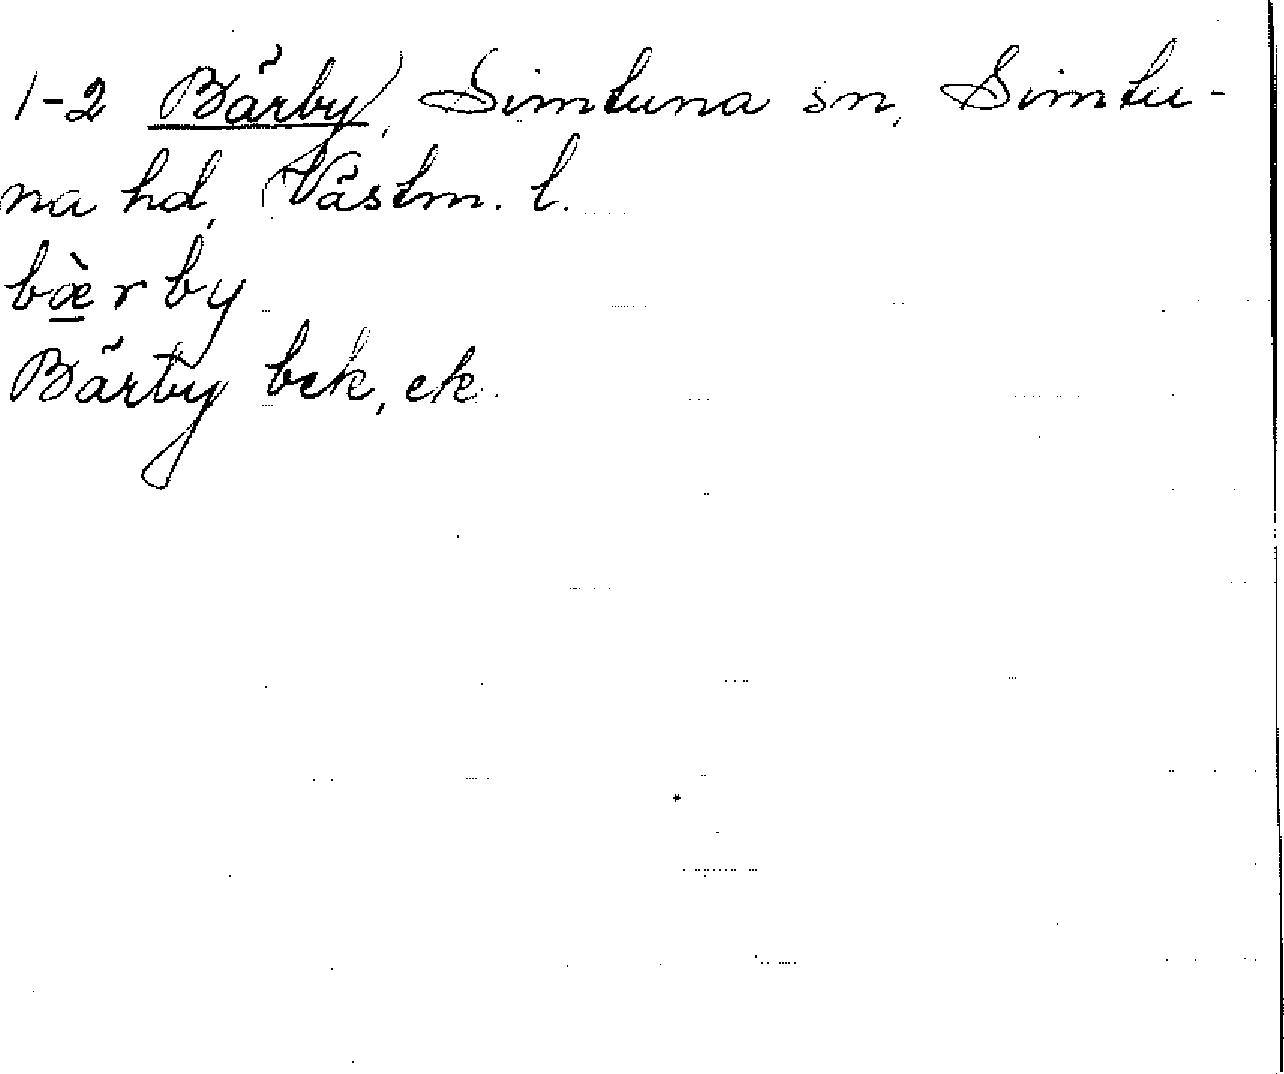 1-2 Bärby, Simtuna sn, Simtu-
na hd, Västm. l.
bæ̀r by
Bärby bek, ek.